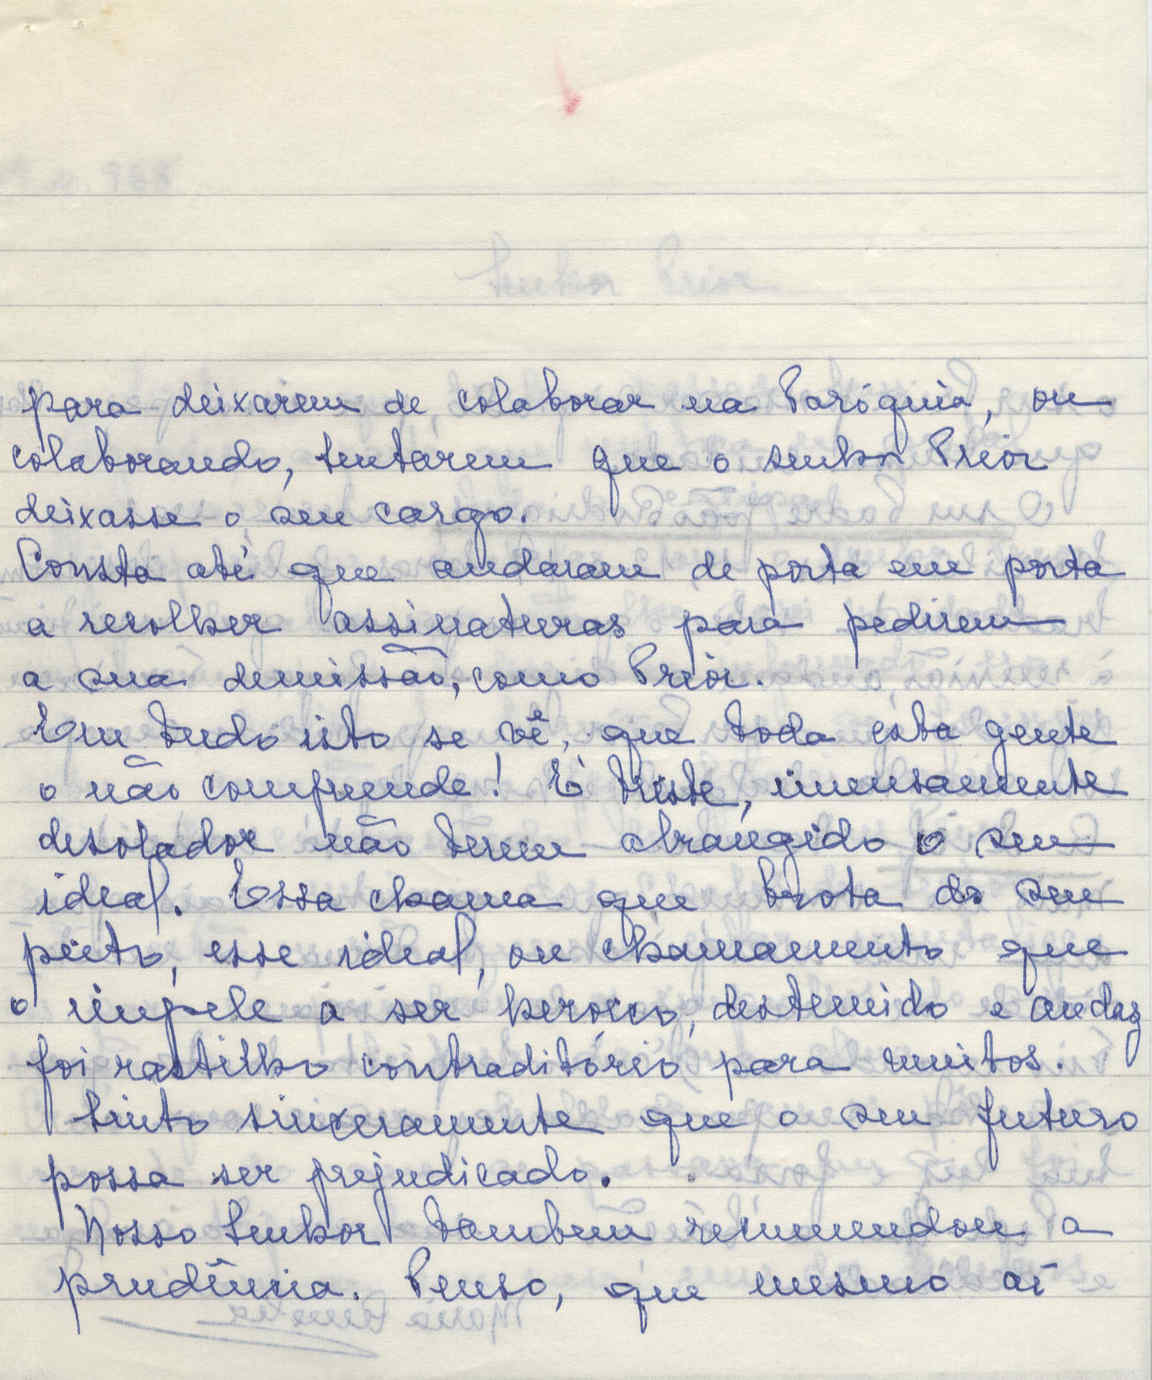 para deixarem de colaborar na Paróquia, ou
colaborando, tentarem que o senhor Prior
deixasse o seu cargo.
Consta até que andaram de porta em porta
a recolher assinaturas para pedirem
a sua demissão, como Prior.
Em tudo isto se vê, que toda esta gente
o não compreende! É triste, imensamente
desolador não terem abrangido o seu
ideal. Essa chama que brota do seu
peito, esse ideal, ou chamamento que
o impele a ser heroico, destemido e audaz
foi rastilho contraditório para muitos.
Sinto sinceramente que o seu futuro
possa ser prejudicado.
Nosso Senhor tambem recomendou a
prudência. Penso, que mesmo aí